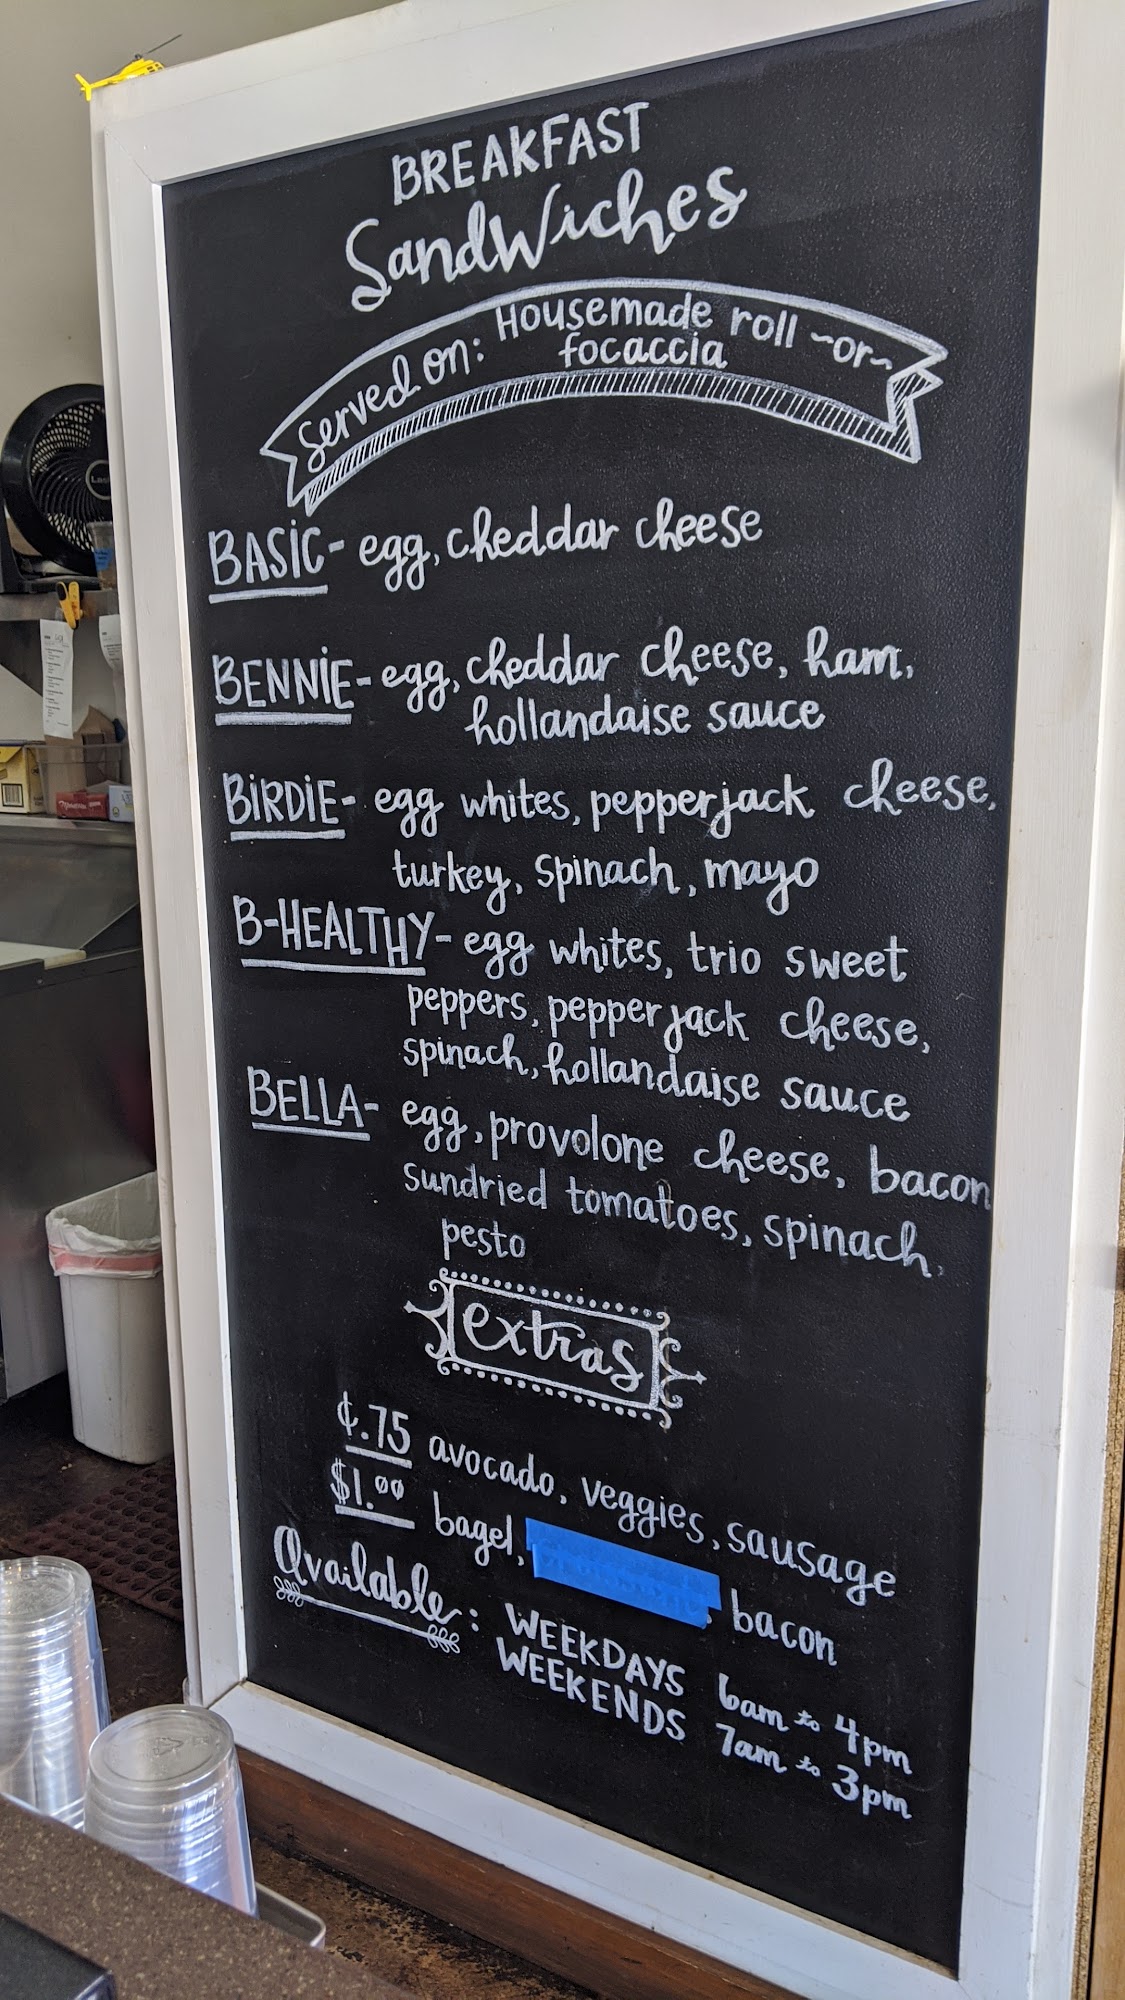 BREAKFAST
SandWiches
Served on: Housemade roll ~or~
focaccia
BASIC- egg, cheddar cheese
BENNIE- egg, cheddar cheese, ham,
hollandaise sauce
BIRDIE- egg whites, pepperjack cheese,
turkey, spinach, mayo
B-HEALTHY- egg whites, trio sweet
peppers, pepperjack cheese,
spinach, hollandaise sauce
BELLA- egg, provolone cheese, bacon
sundried tomatoes, spinach,
pesto
extras
¢.75 avocado, veggies, sausage
$1.00 bagel, bacon
Available: WEEKDAYS 6am to 4pm
WEEKENDS 7am to 3pm